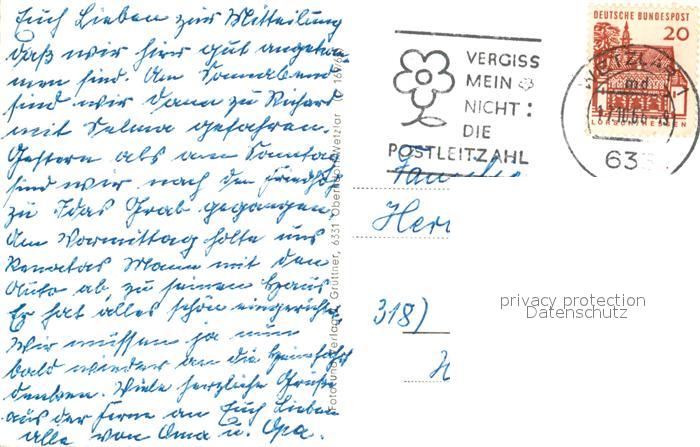 Euch Lieben zur Mitteilung
daß wir hier gut angekom
men sind. Am Sonnabend
sind wir dann zu Richard
mit Selma gefahren.
Gestern als am Sonntag
sind wir nach den Friedhof
zu Idas Grab gegangen.
Am Vormittag holte uns
Renatas Mann mit den
Auto ab, zu seinen Haus
Er hat alles schön eingerichtet.
Wir müssen ja nun
bald wieder an die Heimfahrt
denken. Viele herzliche Grüße
aus der Ferne an Euch Lieben
alle von Oma u. Opa.
Foto und Verlag Gruttner, 6331 Wetzlar
VERGISS
MEIN
NICHT:
DIE
POSTLEITZAHL
DEUTSCHE BUNDESPOST
20
WETZLAR 1
md
17.10.66
LORSCH HESSEN
633
Familie
Herr
318)
H
privacy protection
Datenschutz